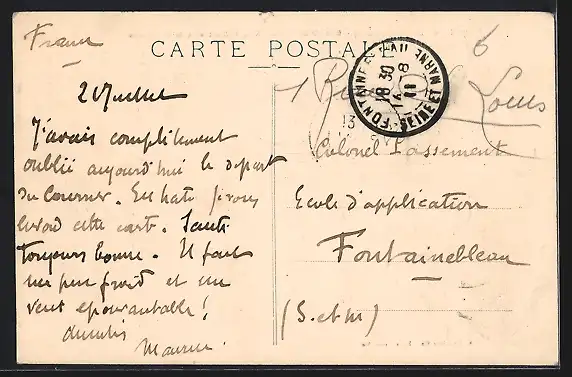 France
CARTE POSTALE
6
FONTAINEBLEAU
18 30
14 - 8
11
SEINE ET MARNE
2 Juillet
J'avais complètement
oublié aujourd'hui le départ
du Courrier. En hate je vous
envoie cette carte. Santé
toujours bonne. Il fait
un peu froid et un
vent épouvantable!
Maurice.
1 Rue
Louis
13
Colonel Passement
Ecole d'application
Fontainebleau
(S. et M)